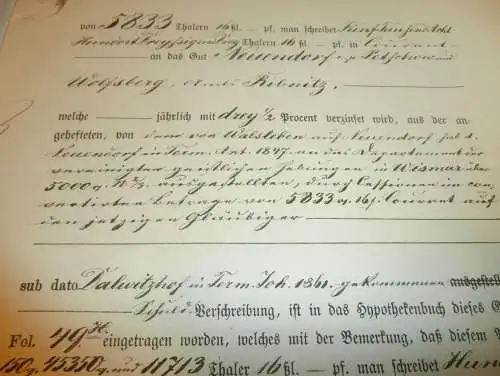 von 5833 Thalern 16 ßl. – pf. man schreibet Fünf Tausend Acht
Hundert Dreyssig und Drey Thalern 16 ßl. – pf. in Courant
an das Gut Neuendorf c. p. Petschow und
Wolfsberg, Amts Ribnitz,
welche jährlich mit drey 1/2 Procent verzinset wird, aus der
angehefteten, von dem von Walsleben auf Neuendorf sub d.
Neuendorf in Term. Ant. 1847 an das Departement der
vereinigten geistlichen Hebungen in Wismar über
5000 ausgestellten, durch Cessionen in con
vertirten Betrage von 5833 16 ßl. Courant auf
den jetzigen Gläubiger
sub dato Dalwitzhof in Term. Joh. 1861 gekommenen ausgestell
Schuld Verschreibung, ist in das Hypothekenbuch dieses G
Fol. 49 eingetragen worden, welches mit der Bemerkung, daß diesem
150, 45350 und 11713 Thaler 16 ßl. – pf. man schreibet Hun